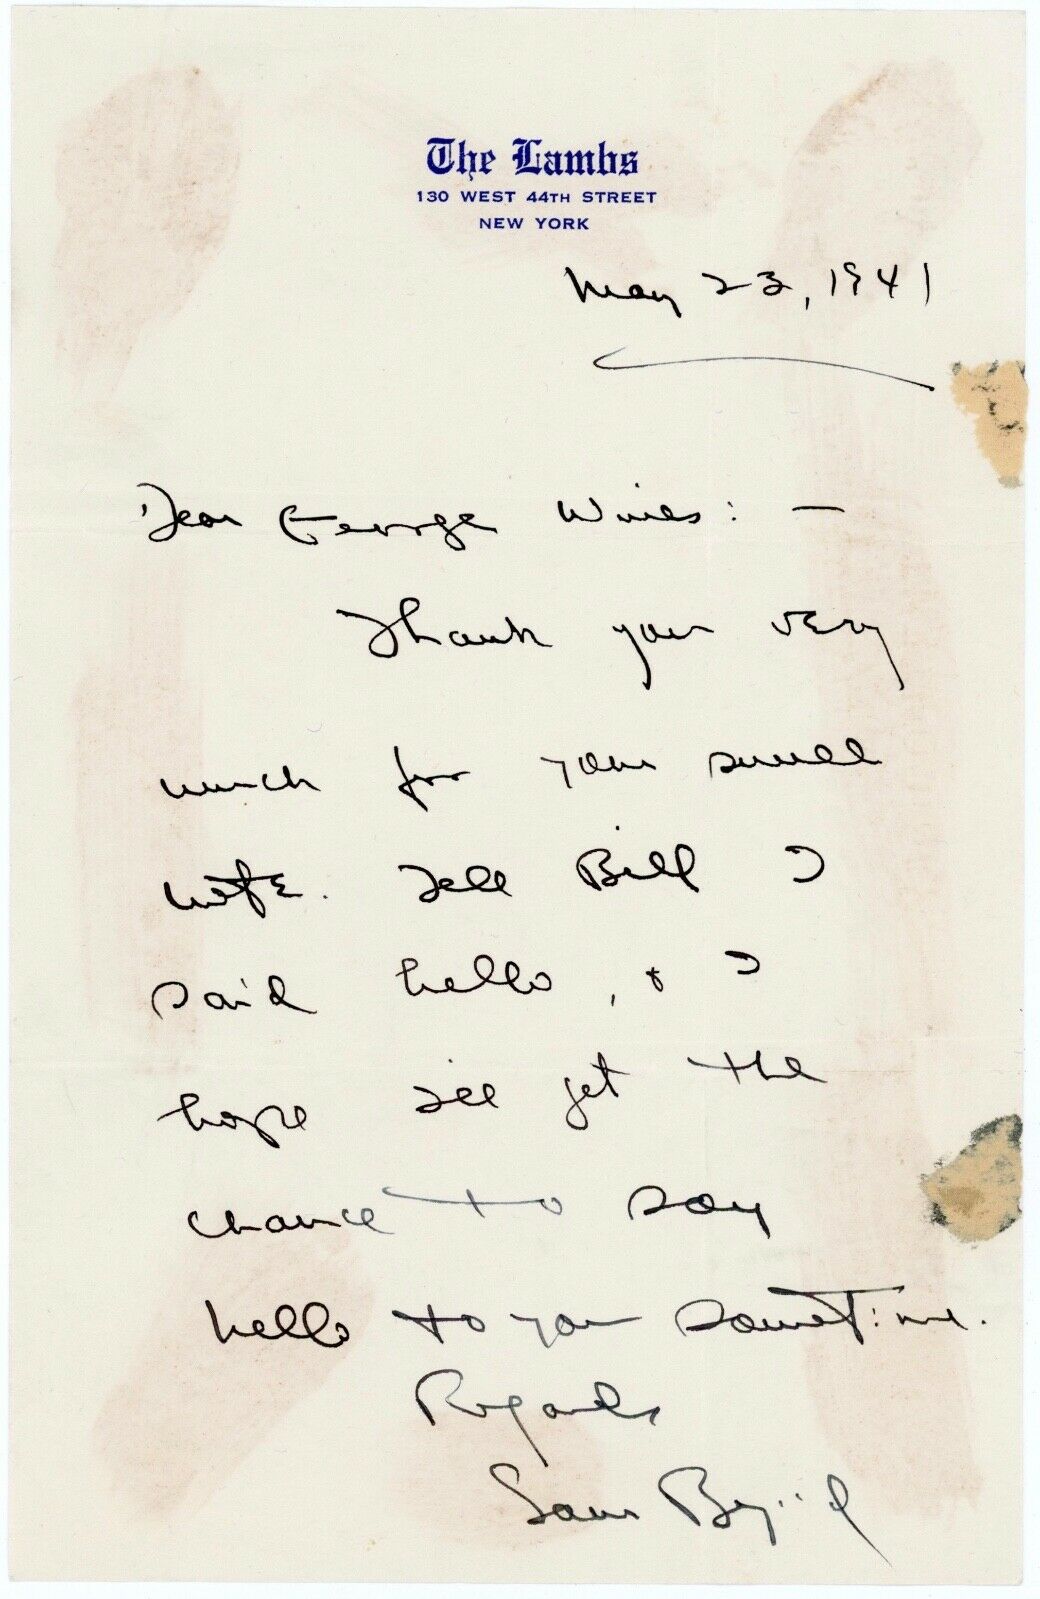 The Lambs
130 WEST 44TH STREET
NEW YORK
May 23, 1941
Dear George Wines: —
Thank you very
much for your swell
note. Tell Bill I
said hello, & I
hope I'll get the
chance to say
hello to you sometime.
Regards
Sam Byrd